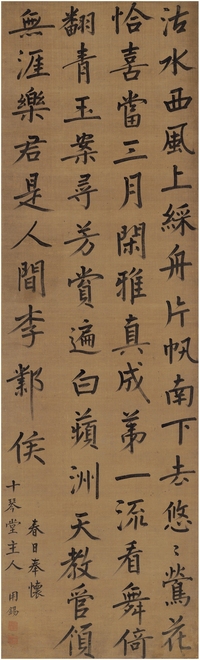 沽水西風上綵舟片帆南下去悠〻鶯花
恰喜當三月閑雅真成第一流看舞倚
翻青玉案尋芳賞遍白蘋洲天教管領
無涯樂君是人間李鄴侯
春日奉懷
十琴堂主人 用錫